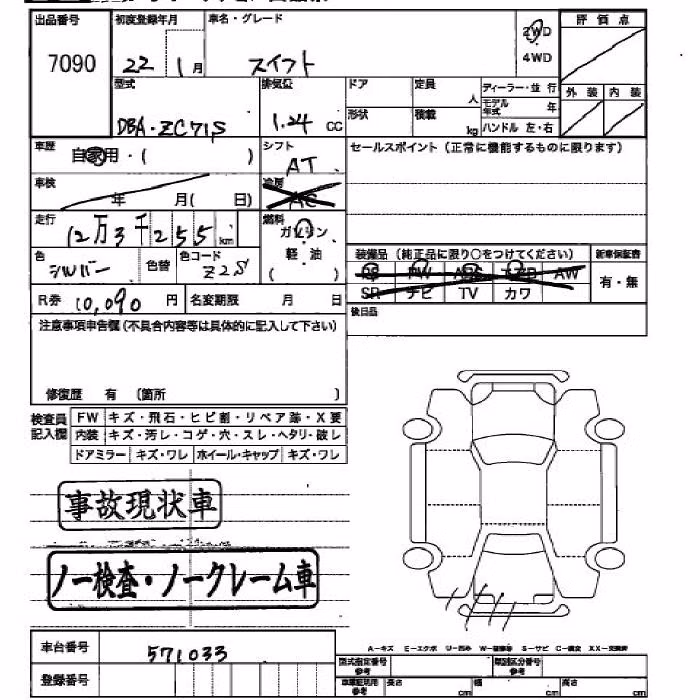 出品番号 初度登録年月 車名・グレード 2WD 評価点
7090 22 1月 スイフト 4WD
型式 排気量 ドア 定員 人 ディーラー・並行 外装 内装
DBA・ZC71S 1.24 CC 形状 積載 kg モデル年式 年
ハンドル 左・右
車歴 自家用・( ) シフト AT セールスポイント(正常に機能するものに限ります)
車検 年 月( 日) 冷房 AC
走行 12万3千255km 燃料 ガソリン
色 シルバー 色替 色コード Z2S 軽油 ( ) 装備品(純正品に限り○をつけてください) 新車保証書
PS PW ABS AW 有・無
R券 10,090円 名変期限 月 日 SR ナビ TV カワ
注意事項申告欄(不具合内容等は具体的に記入して下さい) 後日品
修復歴 有 〔箇所 〕
検査員記入欄 FW キズ・飛石・ヒビ割・リペア跡・X要
内装 キズ・汚レ・コゲ・穴・スレ・ヘタリ・破レ
ドアミラー キズ・ワレ ホイール・キャップ キズ・ワレ
事故現状車
ノー検査・ノークレーム車
車台番号 571033 A－キズ E－エクボ U－凹み S－サビ C－腐食 XX－交換済
型式指定番号 参考 類別区分番号 参考
登録番号 参考 長さ cm 幅 cm 高さ cm